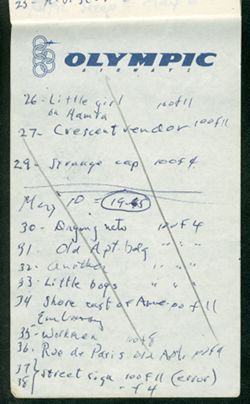 OLYMPIC
AIRWAYS
26- Little girl 100 f 11
on Hamra
27- Crescent vendor 100 f 11
29- Strange cap 100 f 4
May 10 - 1965
30 - Drying nets 100 f 4
31. Old Apt. bldg " " "
32- another " " "
33- Little boys " " "
34 Shore east of Amer. 100 f 11
Embassy
35- Workmen 100 f 8
36. Rue de Paris old Apt. 100 f 4
37
38 street sign 100 f 11 (error)
" f 4